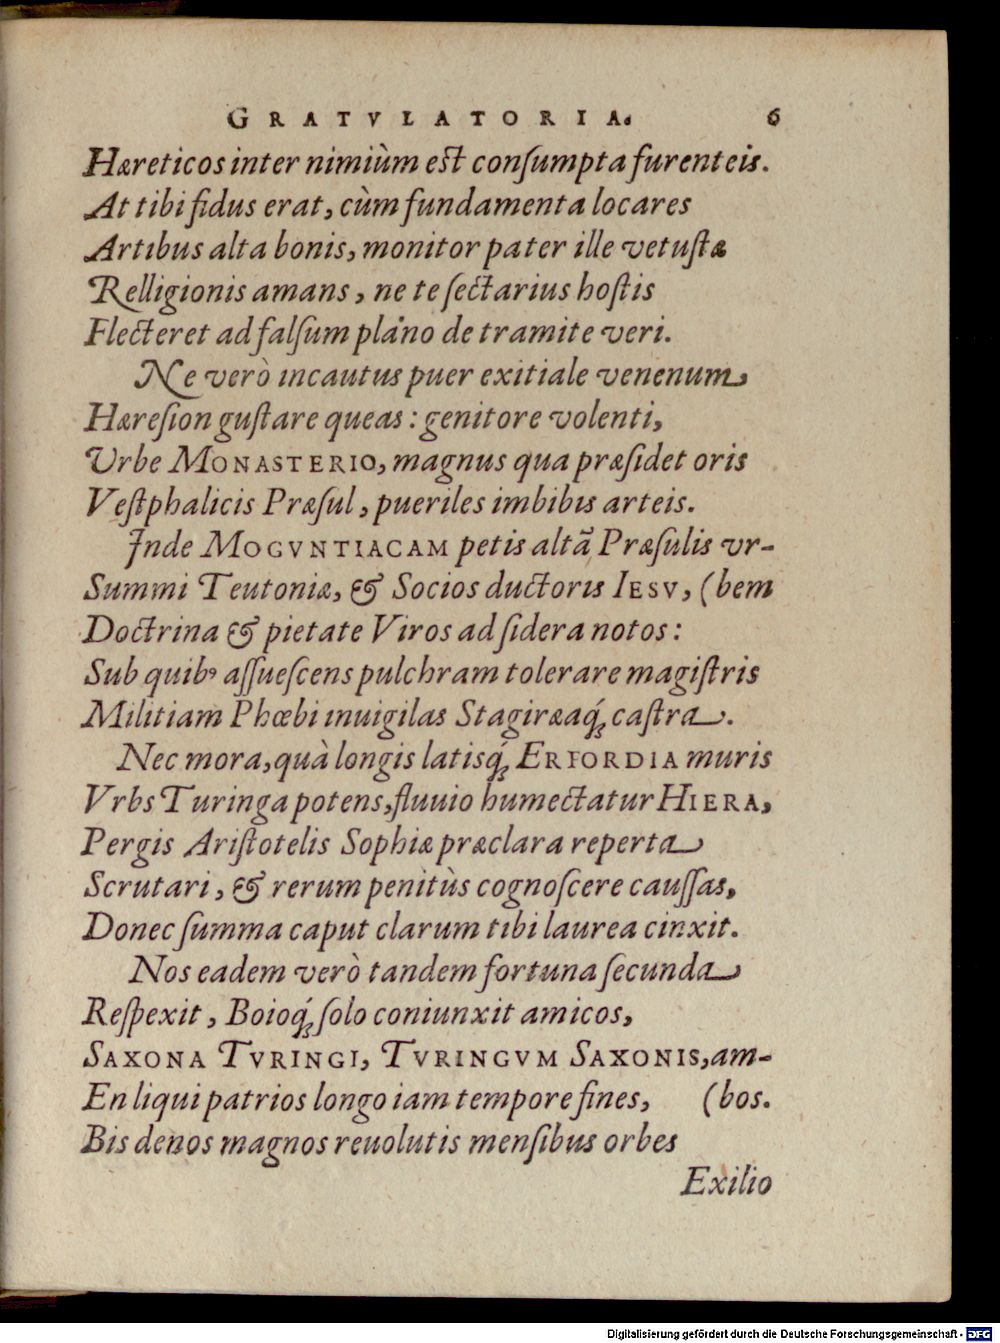 GRATVLATORIA. 6
Hæreticos inter nimiùm est consumpta furenteis.
At tibi fidus erat, cùm fundamenta locares
Artibus alta bonis, monitor pater ille vetustæ
Relligionis amans, ne te sectarius hostis
Flecteret ad falsum plano de tramite veri.
Ne verò incautus puer exitiale venenum
Hæresion gustare queas: genitore volenti,
Vrbe MONASTERIO, magnus qua præsidet oris
Vestphalicis Præsul, pueriles imbibis arteis.
Inde MOGVNTIACAM petis altã Præsulis vr-
Summi Teutoniæ, & Socios ductoris IESV, (bem
Doctrina & pietate Viros ad sidera notos:
Sub quibꝰ assuescens pulchram tolerare magistris
Militiam Phœbi inuigilas Stagiræaq́; castra.
Nec mora, quà longis latisq́; ERFORDIA muris
Vrbs Turinga potens, fluuio humectatur HIERA,
Pergis Aristotelis Sophiæ præclara reperta
Scrutari, & rerum penitùs cognoscere caussas,
Donec summa caput clarum tibi laurea cinxit.
Nos eadem verò tandem fortuna secunda
Respexit, Boioq́; solo coniunxit amicos,
SAXONA TVRINGI, TVRINGVM SAXONIS, am-
En liqui patrios longo iam tempore fines, (bos.
Bis denos magnos reuolutis mensibus orbes
Exilio
Digitalisierung gefördert durch die Deutsche Forschungsgemeinschaft - DFG